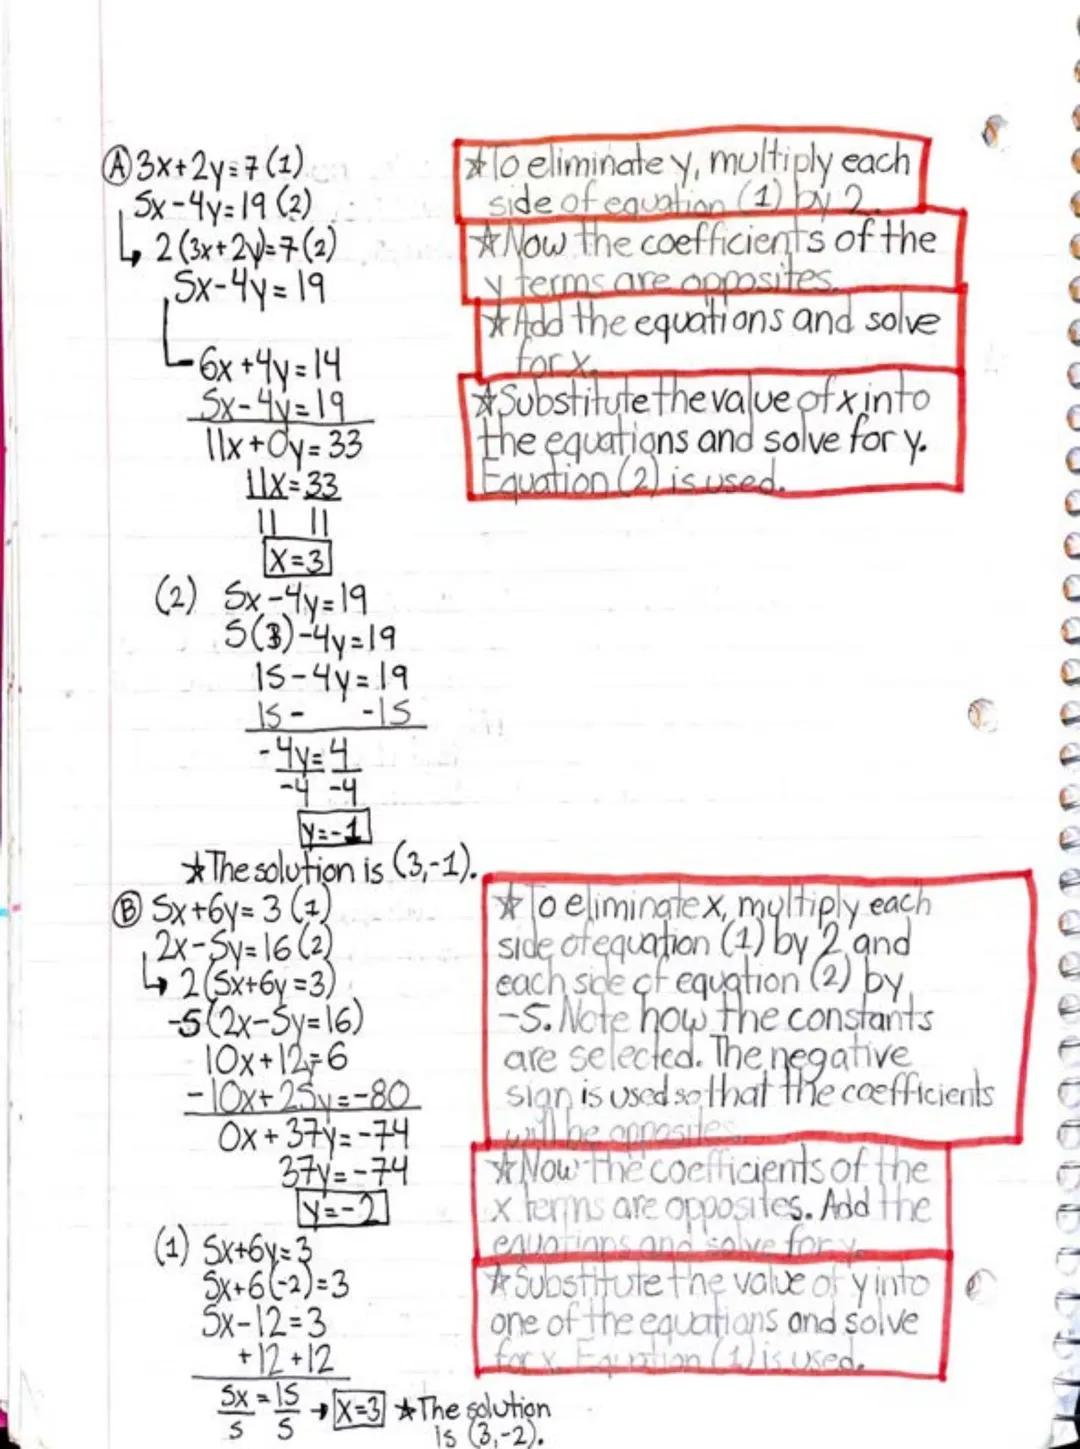 Ⓐ 3x+2y=7 (1)
5x-4y=19 (2)
↳ 2(3x+2y)=7(2)
5x-4y=19
6x+4y=14
5x-4y=19
11x+0y=33
11x=33
11 11
x=3
(2) 5x-4y=19
5(3)-4y=19
15-4y=19
15- -15
-4y=4
-4 -4
y=-1
☆The solution is (3,-1).
☆To eliminate y, multiply each
side of equation (1) by 2.
☆Now the coefficients of the
y terms are opposites.
☆Add the equations and solve
for x.
☆Substitute the value of x into
the equations and solve for y.
Equation (2) is used.
Ⓑ 5x+6y=3 (1)
2x-5y=16 (2)
↳ 2(5x+6y=3)
-5(2x-5y=16)
10x+12=6
-10x+25y=-80
0x+37y=-74
37y=-74
y=-2
(1) 5x+6y=3
5x+6(-2)=3
5x-12=3
+12 +12
5x = 15
5 5 → x=3 ☆The solution
is (3,-2).
☆To eliminate x, multiply each
side of equation (1) by 2 and
each side of equation (2) by
-5. Note how the constants
are selected. The negative
sign is used so that the coefficients
will be opposites.
☆Now the coefficients of the
x terms are opposites. Add the
equations and solve for y.
☆Substitute the value of y into
one of the equations and solve
for x. Equation (1) is used.